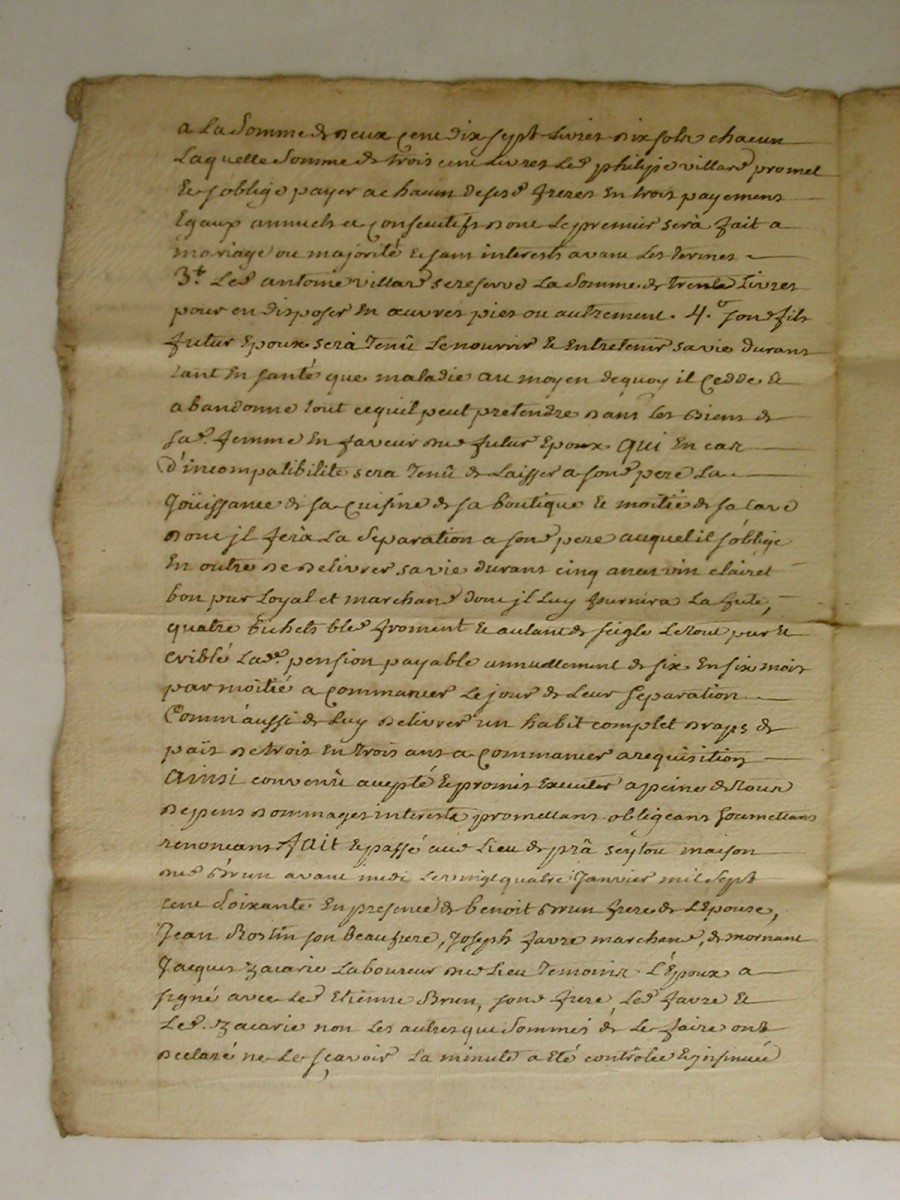 a La Somme de deux cent dix sept Livres dix sols chacun
Laquelle Somme de trois cent Livres Led. philipe villard promet
et s'oblige payer a chacun desesd. freres En trois payemens
Egaux annuels et consecutifs dont Le premier sera fait a
mariage ou majorité et sans interests avant Les termes
3.t Led. antoine villard se reserve La Somme de trente Livres
pour en disposer En œuvres pies ou autrement. 4.o sond. fils
futur Epoux sera tenû Le nourrir et Entretenir sa vie durant
tant En santé que maladie au moyen dequoy il Cedde et
abandonne tout cequil peut pretendre dans Les Biens de
sad. femme En faveur dud. futur Epoux qui En cas
d'incompatibilité sera tenû de Laisser a sond. pere La
joüissance de sa cuisine de sa boutique et moitié de sa cave
dont jl fera La Separation a sond. pere auquel il s'oblige
En outre de delivrer sa vie durant cinq anées vin clairet
bon pur Loyal et marchand dont jl Luy fournira La fute,
quatre bichets bled froment et autant de seigle Le tout pur et
criblé Lad. pension payable annuellement de six En six mois
par moitié a commancer Le jour de Leur separation
Comm'aussi de Luy delivrer un habit complet draps de
païs de trois En trois ans a commancer a requisition
Ainsi convenû accepté et promis Executer a peine de tous
depens dommages interests promettans obligeans soumettans
renonceans fait et passé aud. Lieu de prâ seytou maison
dud. Brun avant midi Le vingt quatre Janvier mil Sept
cent Soixante En presence de benoit Brun frere de L'Epouse,
Jean Rostin son Beaufrere, Joseph favre marchand, de mornant
Jacques zacarie Laboureur dud. Lieu temoins L'Epoux a
signé avec Led. Etienne Brun, sond. frere, Led. favre et
Led. zacarie non Les autres que Sommés de Le faire ont
declaré ne Le sçavoir La minute a eté contrôlée et jnsinuée